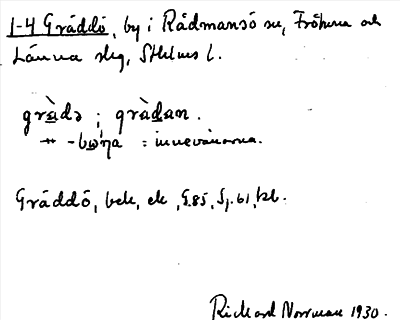 1-4 Gräddö, by i Rådmansö sn, Frötuna och
Länna slg, Sthlms l.
grædə ; grædan.
-bωṇa = innevånarna.
Gräddö, bek, ek, G.85, Sj.61, kbl.
Rickard Norrman 1930.